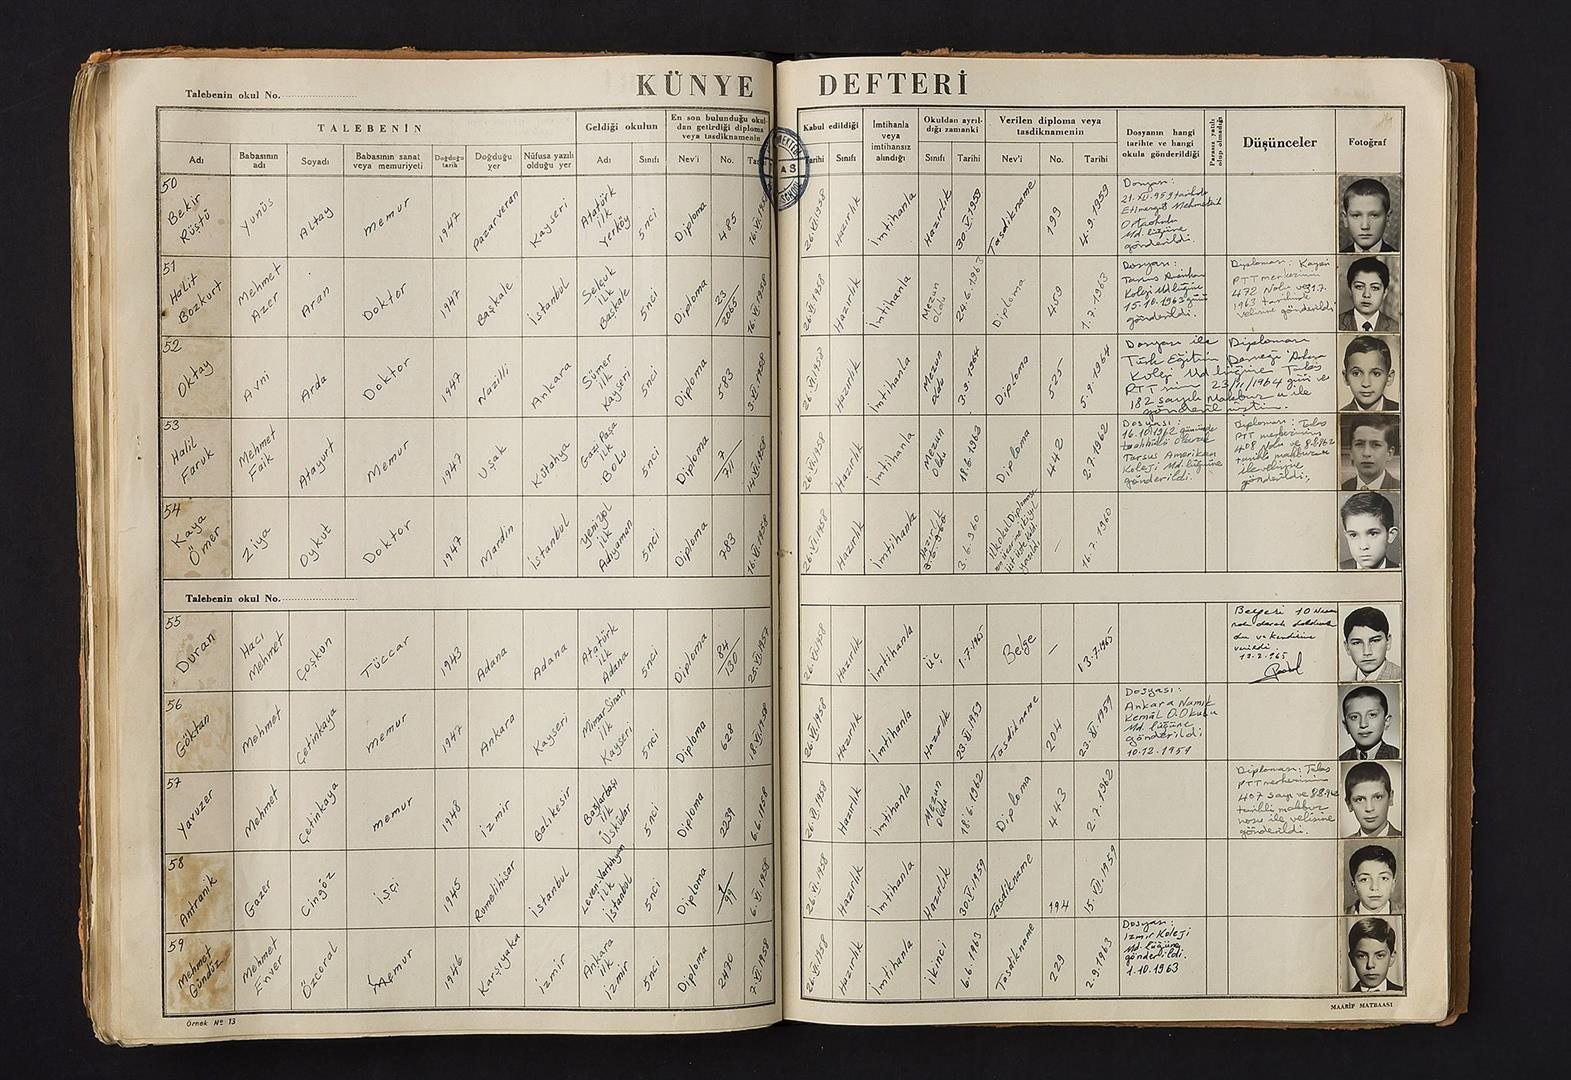 KÜNYE DEFTERİ
Talebenin okul No.
TALEBENİN
Geldiği okulun
En son bulunduğu okul-
dan getirdiği diploma
veya tasdiknamenin
Kabul edildiği
İmtihanla
veya
imtihansız
alındığı
Okuldan ayrıl-
dığı zamanki
Verilen diploma veya
tasdiknamenin
Dosyanın hangi
tarihte ve hangi
okula gönderildiği
Parasız yatılı
olup olmadığı
Düşünceler
Fotoğraf
Adı
Babasının
adı
Soyadı
Babasının sanat
veya memuriyeti
Doğduğu
tarih
Doğduğu
yer
Nüfusa yazılı
olduğu yer
Adı
Sınıfı
Nev'i
No.
Tarihi
Sınıfı
Sınıfı
Tarihi
Nev'i
No.
Tarihi
50
Bekir
Rüştü
Yunüs
Altay
Memur
1947
Pazarveran
Kayseri
Atatürk
ilk
Yerköy
5nci
Diploma
485
26.VI.1958
Hazırlık
İmtihanla
Hazırlık
30.VI.1959
Tasdikname
199
4.9.1959
Dosyası:
Ortaokulu
Md. lüğüne
gönderildi.
51
Halit
Bozkurt
Mehmet
Azer
Aran
Doktor
1947
Başkale
İstanbul
Selçuk
ilk
Başkale
5nci
Diploma
23
2065
16.VI.1958
26.VI.1958
Hazırlık
İmtihanla
Mezun
oldu
24.6.1963
Diploma
459
1.7.1963
Dosyası:
Tarsus Amerikan
Koleji Md.lüğüne
15.10.1963 günü
gönderildi.
Diploması: Kayseri
PTT merkezinin
472 Nolu ve 31.7.
1963 tarihinde
velisine gönderildi
52
Oktay
Avni
Arda
Doktor
1947
Nazilli
Ankara
Sümer
ilk
Kayseri
5nci
Diploma
583
3.VI.1958
26.VI.1958
Hazırlık
İmtihanla
Mezun
oldu
3.9.1964
Diploma
525
5.9.1964
Dosyası ile Diploması
Türk Eğitim Derneği
Koleji Md.lüğüne Talas
PTT'nin 23/11/1964 gün ve
182 sayılı Makbuz u ile
gönderilmiştir.
53
Halil
Faruk
Mehmet
Faik
Atayurt
Memur
1947
Uşak
Kütahya
Gazi Paşa
ilk
Bolu
5nci
Diploma
7
711
14.VI.1958
26.VI.1958
Hazırlık
İmtihanla
Mezun
oldu
18.6.1963
Diploma
442
2.7.1962
Dosyası:
16.10.1962 gününde
taahhütlü olarak
Tarsus Amerikan
Koleji Md.lüğüne
gönderildi.
Diploması: Talas
PTT merkezinin
408 Nolu ve 8.8.962
tarihli makbuzu
ile velisine
gönderildi.
54
Kaya
Ömer
Ziya
Oykut
Doktor
1947
Mardin
İstanbul
Yenigol
ilk
Adıyaman
5nci
Diploma
783
16.VI.1958
26.VI.1958
Hazırlık
İmtihanla
Hazırlık
3.6.960
3.6.960
İlkokul Diploması
16.7.1960
Talebenin okul No.
55
Duran
Hacı
Mehmet
Çoşkun
Tüccar
1943
Adana
Adana
Atatürk
ilk
Adana
5nci
Diploma
84
130
25.VI.1957
26.VI.1958
Hazırlık
İmtihanla
üç
1.7.965
Belge
—
13.7.965
verildi
13.7.965
56
Göktan
Mehmet
Çetinkaya
memur
1947
Ankara
Kayseri
Mimar Sinan
ilk
Kayseri
5nci
Diploma
628
18.VI.1958
26.VI.1958
Hazırlık
İmtihanla
Hazırlık
23.VI.1959
Tasdikname
204
23.VI.1959
Dosyası:
Ankara Namık
Kemâl O.Okulu
Md. lüğüne
gönderildi
10.12.1959
57
Yavuzer
Mehmet
Çetinkaya
memur
1948
İzmir
Balıkesir
Bağlarbaşı
ilk
Üsküdar
5nci
Diploma
2239
6.6.1958
26.VI.1958
Hazırlık
İmtihanla
Mezun
oldu
18.6.1962
Diploma
443
2.7.1962
Diploması: Talas
PTT merkezinin
407 sayı ve 8.8.962
tarihli makbuz
nosu ile, velisine
gönderildi.
58
Antranik
Gazer
Cingöz
İşçi
1945
Rumelihisar
İstanbul
Levon-Vartuhyan
ilk
İstanbul
5nci
Diploma
1
99
6.VI.1958
26.VI.1958
Hazırlık
İmtihanla
Hazırlık
30.VI.1959
Tasdikname
194
15.VI.1959
59
Mehmet
Gündüz
Mehmet
Enver
Özceral
Memur
1946
Karşıyaka
İzmir
Ankara
ilk
İzmir
5nci
Diploma
2470
7.VI.1958
26.VI.1958
Hazırlık
İmtihanla
İkinci
6.6.1963
Tasdikname
229
2.9.1963
Dosyası:
İzmir Koleji
Md. lüğüne
gönderildi.
1.10.1963
Örnek No 13
MAARİF MATBAASI